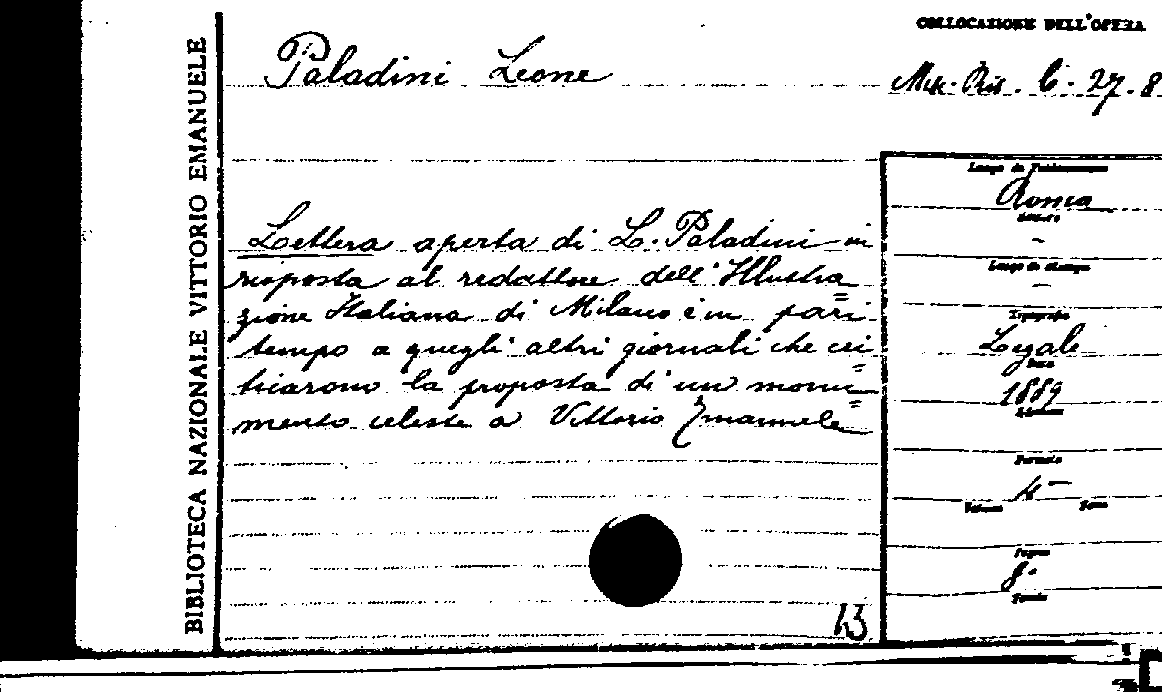 COLLOCAZIONE DELL'OPERA
Paladini Leone
Mis. Ris. b. 27. 8
BIBLIOTECA NAZIONALE VITTORIO EMANUELE
Lettera aperta di L. Paladini in
risposta al redattore dell'Illustra=
zione Italiana di Milano e in pari
tempo a quegli altri giornali che cri=
ticarono la proposta di un monu=
mento celeste a Vittorio Emanuele
13
Luogo di Pubblicazione
Roma
Editore
-
Luogo di stampa
-
Tipografia
Legale
Data
1889
Edizione
Formato
4-
Volume
Tomo
Pagine
8.
Tavole